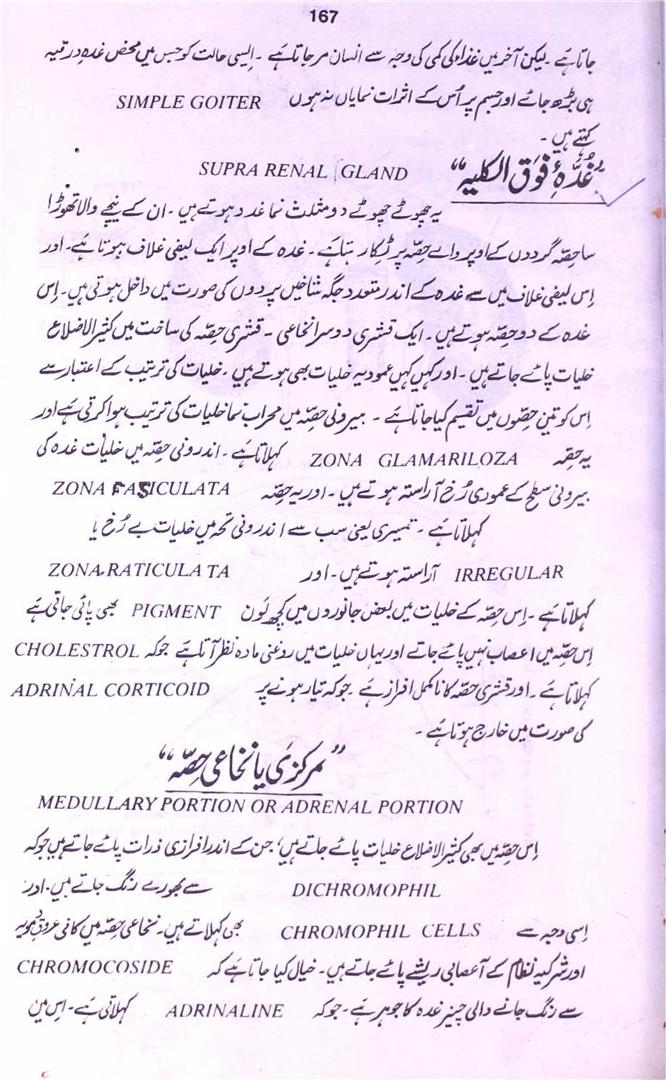 167
جاتا ہے ۔ لیکن آخر میں غذا کی کمی کی وجہ سے انسان مر جاتا ہے ۔ ایسی حالت کو جس میں محض غدہ درقیہ
ہی بڑھ جائے اور جسم پر اُس کے اثرات نمایاں نہ ہوں SIMPLE GOITER
کہتے ہیں ۔
”غُدّہٴ فوق الکلیہ“ SUPRA RENAL GLAND
یہ چھوٹے چھوٹے دو مثلث نما غدود ہوتے ہیں ۔ ان کے نیچے والا تھوڑا
سا حصّہ گردوں کے اوپر والے حصّہ پر ٹِکا رہتا ہے ۔ غدہ کے اوپر ایک لیفی غلاف ہوتا ہے ۔ اور
اِس لیفی غلاف میں سے غدہ کے اندر متعدد جگہ شاخیں پردوں کی صورت میں داخل ہوتی ہیں ۔ اِس
غدہ کے دو حصّہ ہوتے ہیں ۔ ایک قشری دوسرا نخاعی ۔ قشری حصّہ کی ساخت میں کثیر الاضلاع
خلیات پائے جاتے ہیں ۔ اور کہیں کہیں عمودیہ خلیات بھی ہوتے ہیں ۔ خلیات کی ترتیب کے اعتبار سے
اِس کو تین حصّوں میں تقسیم کیا جاتا ہے ۔ بیرونی حصّہ میں محراب نما خلیات کی ترتیب ہوا کرتی ہے اور
یہ حصّہ ZONA GLAMARILOZA کہلاتا ہے ۔ اندرونی حصّہ میں خلیات غدہ کی
بیرونی سطح کے عمودی رُخ آراستہ ہوتے ہیں ۔ اور یہ حصّہ ZONA FASICULATA
کہلاتا ہے ۔ تیسری یعنی سب سے اندرونی تحہ میں خلیات بے رُخ یا
IRREGULAR آراستہ ہوتے ہیں ۔ اور ZONA RATICULATA
کہلاتا ہے ۔ اِس حصّہ کے خلیات میں بعض جانوروں میں کچھ لَون PIGMENT بھی پائی جاتی ہے
اِس حصّہ میں اعصاب نہیں پائے جاتے اور یہاں خلیات میں روغنی مادہ نظر آتا ہے جو کہ CHOLESTROL
کہلاتا ہے ۔ اور قشری حصّہ کا نامکمل افراز ہے ۔ جو کہ تیار ہونے پر ADRINAL CORTICOID
کی صورت میں خارج ہوتا ہے ۔
”مرکزی یا نخاعی حصّہ“
MEDULLARY PORTION OR ADRENAL PORTION
اِس حصّہ میں بھی کثیر الاضلاع خلیات پائے جاتے ہیں، جن کے اندر افرازی ذرات پائے جاتے ہیں جو کہ
DICHROMOPHIL سے بھورے رنگ جاتے ہیں ۔ اور
اِسی وجہ سے CHROMOPHIL CELLS بھی کہلاتے ہیں ۔ نخاعی حصّہ میں کافی عروق دمویہ
اور شرکیہ نظام کے اعصابی ریشے پائے جاتے ہیں ۔ خیال کیا جاتا ہے کہ CHROMOCOSIDE
سے رنگ جانے والی چیز غدہ کا جوہر ہے ۔ جو کہ ADRINALINE کہلاتی ہے ۔ اس میں